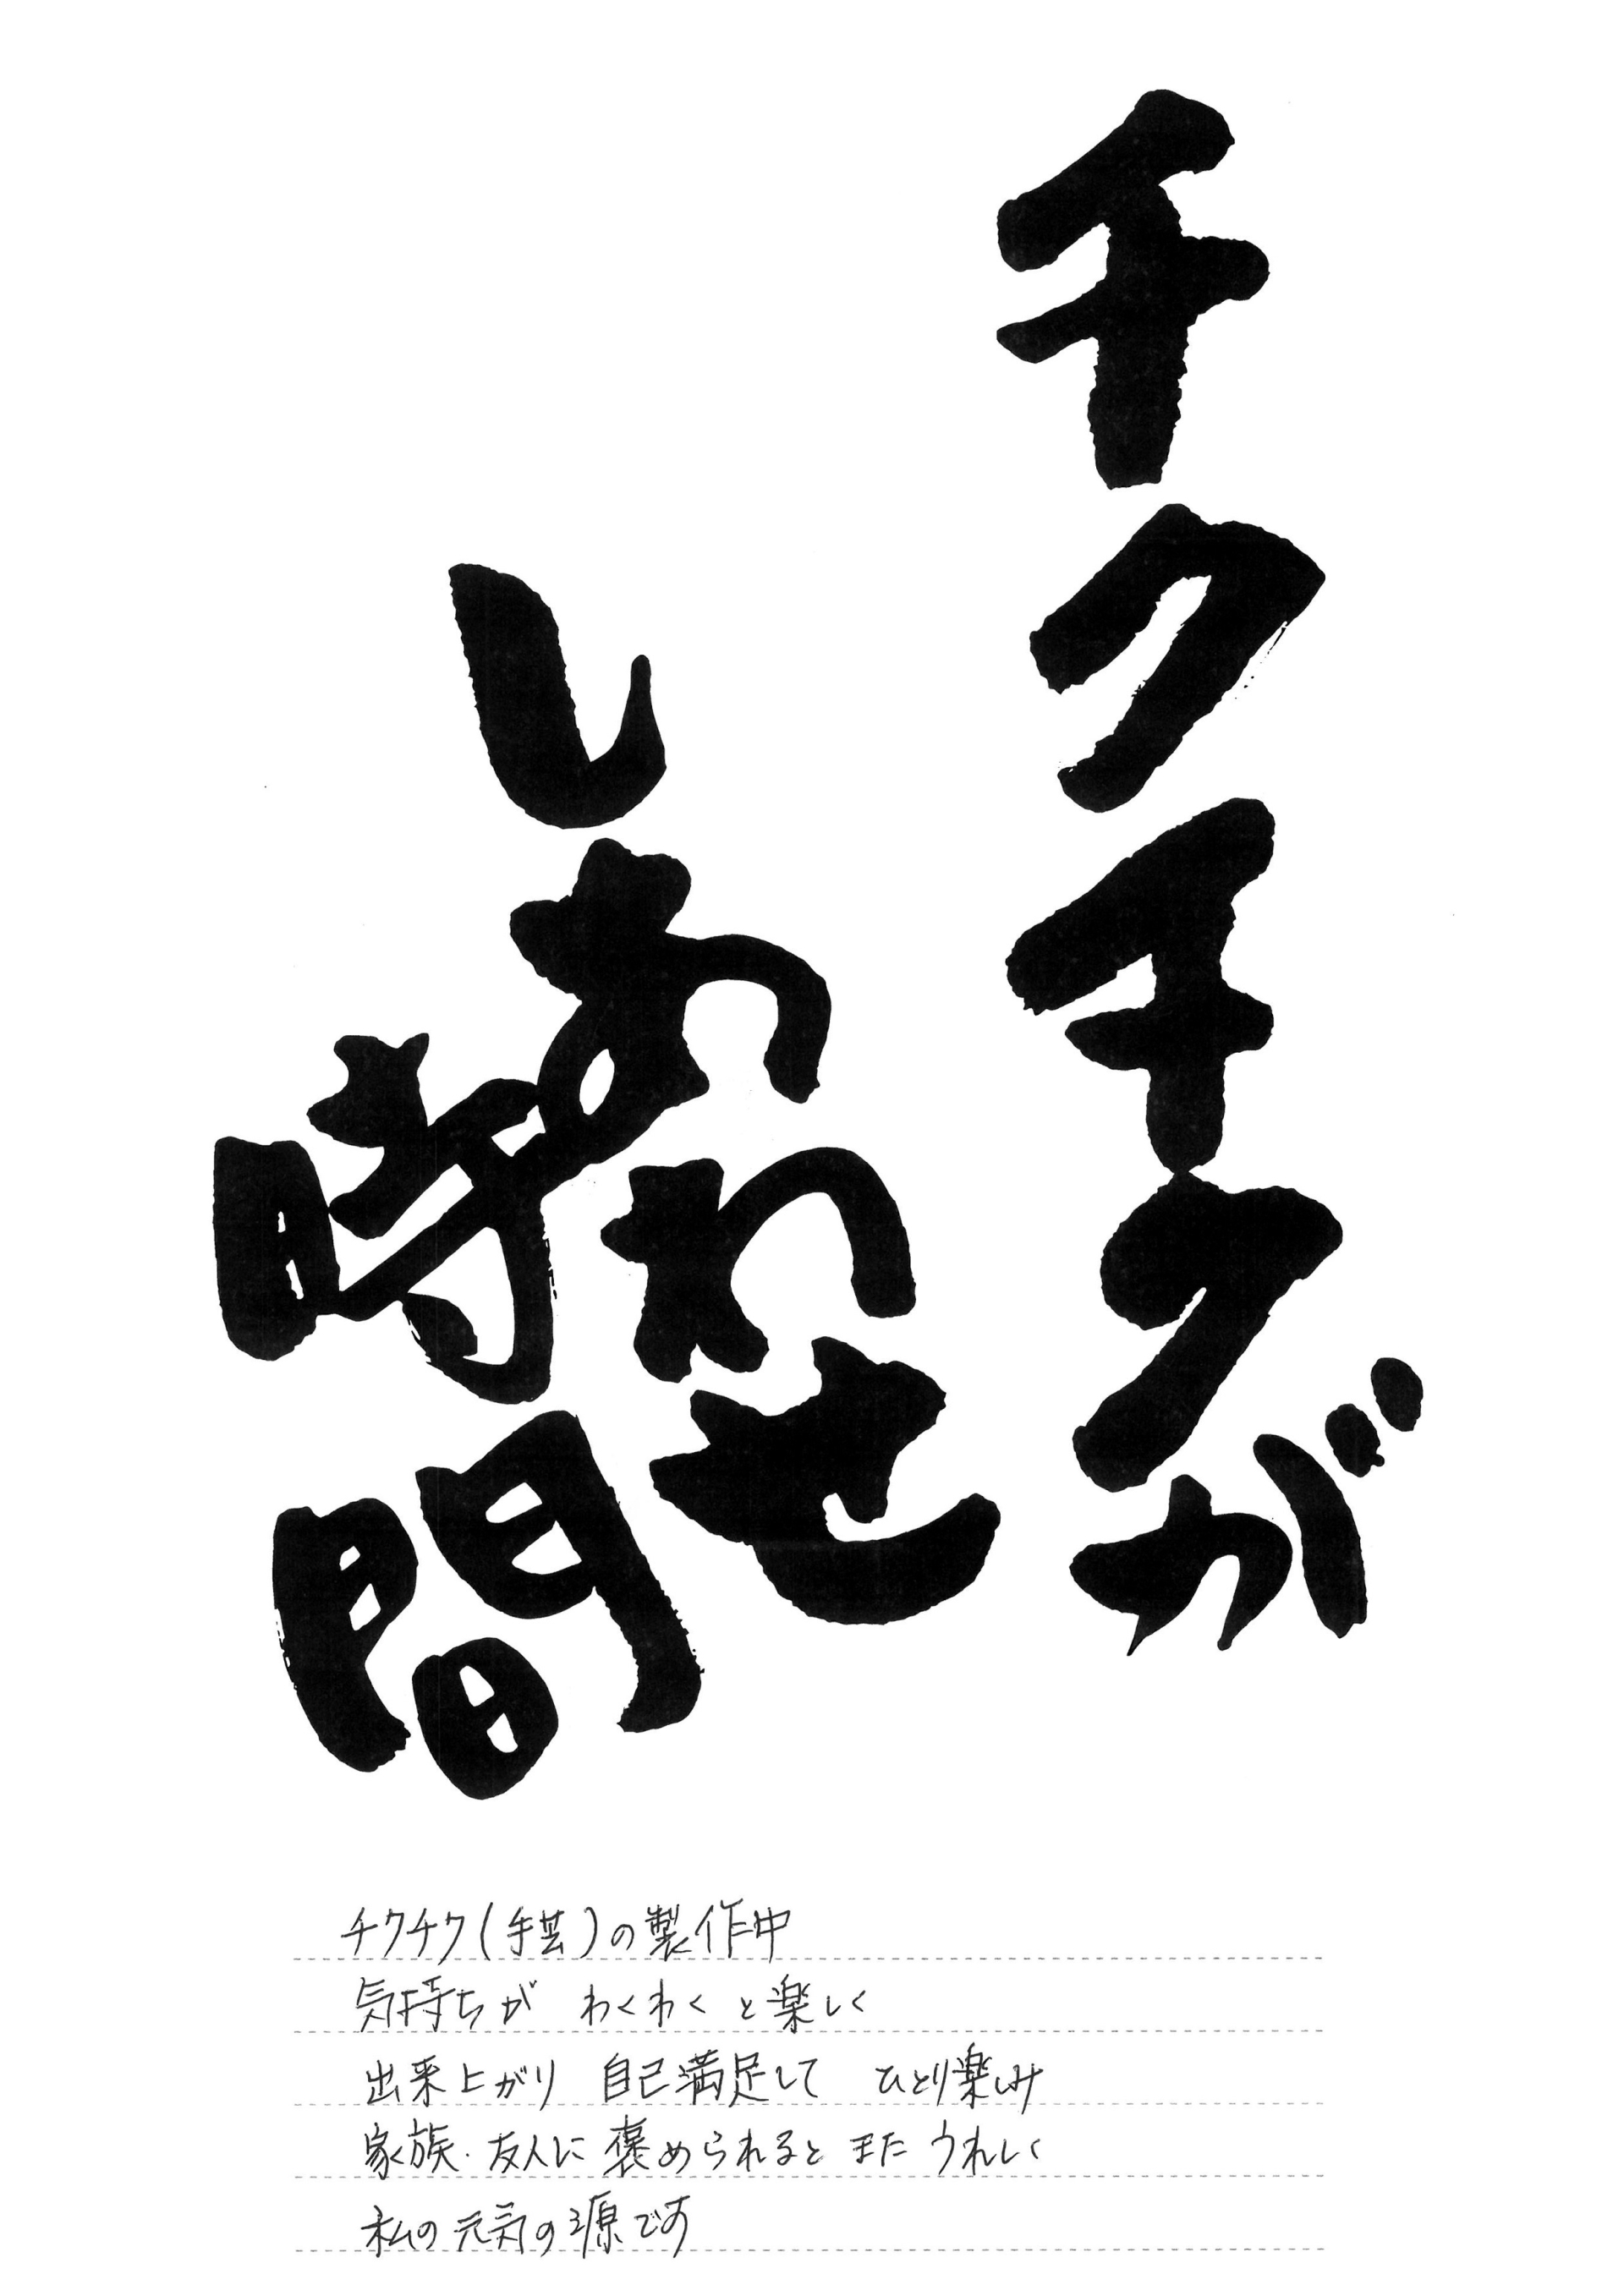 チクチクが
しあわせ
時間
チクチク(手芸)の製作中
気持ちが わくわくと楽しく
出来上がり 自己満足して ひとり楽しみ
家族・友人に 褒められると また うれしく
私の元気の源です